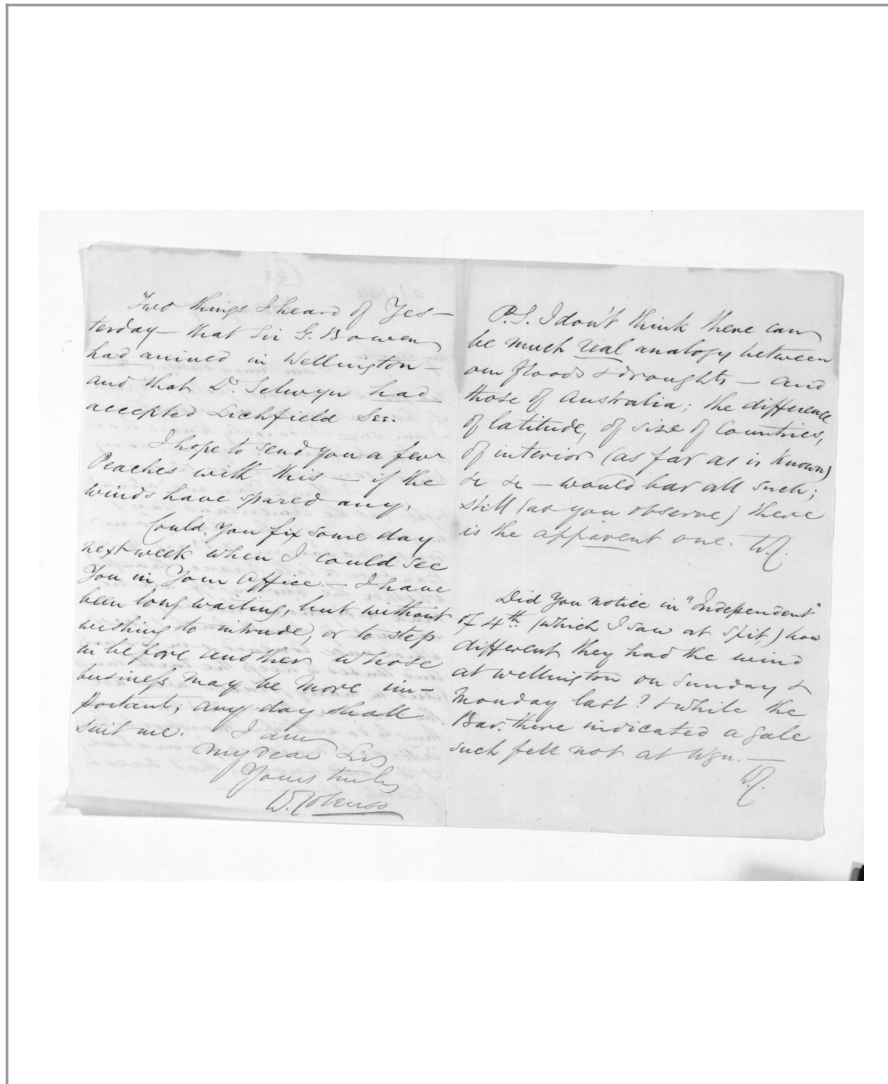 Two things I heard of Yes-
terday — that Sir G. Bowen
had arrived in Wellington —
and that Dr. Selwyn had
accepted Lichfield See.
I hope to send you a few
Peaches with this — if the
winds have spared any.
Could You fix some day
next week when I could see
You in Your Office. — I have
been long waiting, but without
wishing to intrude, or to step
in before another whose
business may be more im-
portant; any day shall
suit me. I am
My dear Sir
Yours truly
W. Colenso
P.S. I don't think there can
be much real analogy between
our floods & droughts — and
those of Australia; the difference
of latitude, of size of Countries,
of interior (as far as is known)
&c &c — would bar all such;
still (as you observe) there
is the apparent one. WC.
Did You notice in "Independent"
of 4th. (which I saw at Spit,) how
different they had the wind
at Wellington on Sunday &
Monday last? & while the
Bar. there indicated a gale
such fell not at Wgn. —
WC.